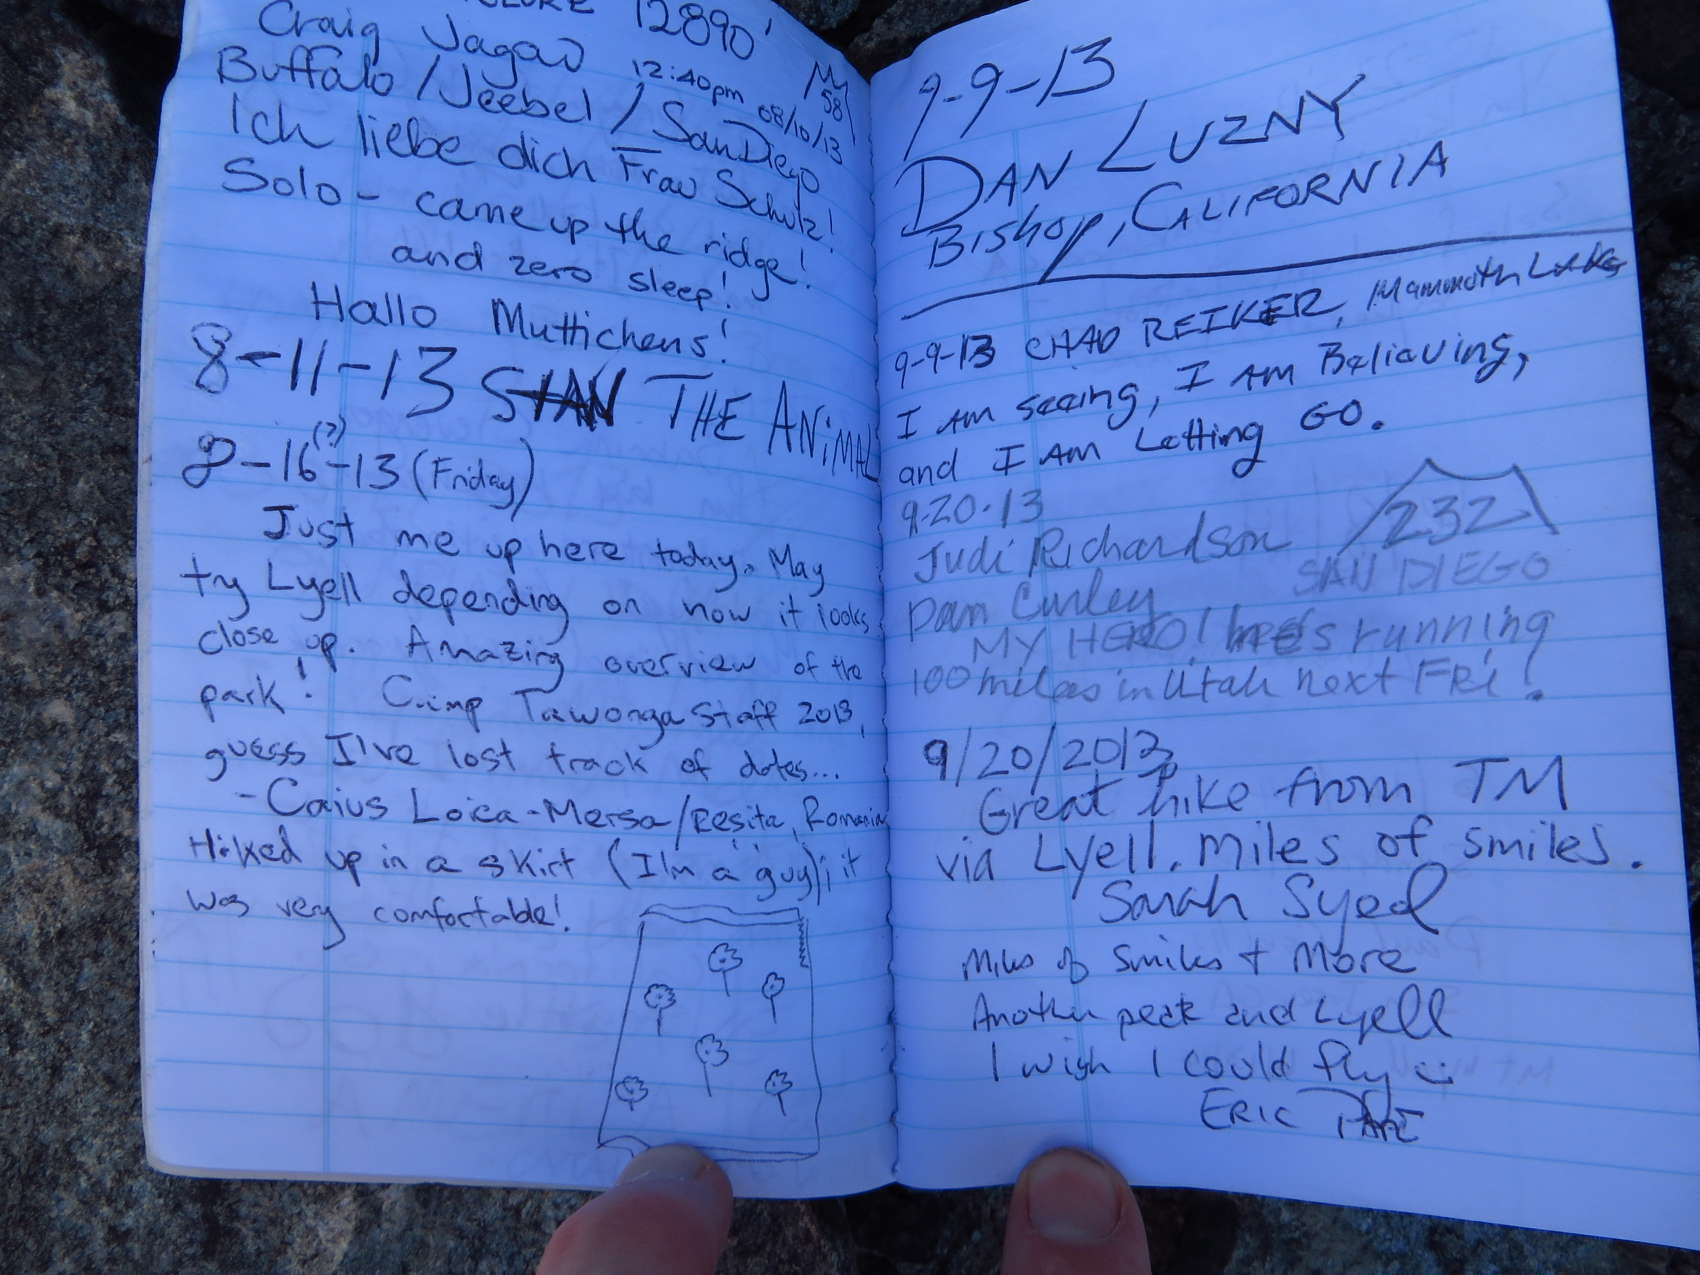 12890'
Craig Jagao
Buffalo / Jeebel / San Diego
12:40pm 08/10/13
My
58
Ich liebe dich Frau Schulz!
Solo - came up the ridge!
and zero sleep!
Hallo Muttichens!
8-11-13 STAN THE ANiMAL
8-16(?)-13 (Friday)
Just me up here today. May
try Lyell depending on how it looks
close up. Amazing overview of the
park! Camp Tawonga Staff 2013,
guess I've lost track of dates...
- Caius Loica-Mersa / Resita, Romania
Hiked up in a skirt (I'm a guy); it
was very comfortable!
9-9-13
DAN LUZNY
Bishop, CALIFORNIA
9-9-13 CHAD REIKER, Mammoth Lakes
I AM seeing, I AM Believing,
and I AM Letting GO.
9-20-13
Judi Richardson
232
SAN DIEGO
Dan Curley
MY HERO! he's running
100 miles in Utah next FRi!
9/20/2013
Great hike from TM
via Lyell. Miles of smiles.
Sarah Syed
Miles of smiles + More
Another peak and Lyell
I wish I could fly
ERIC